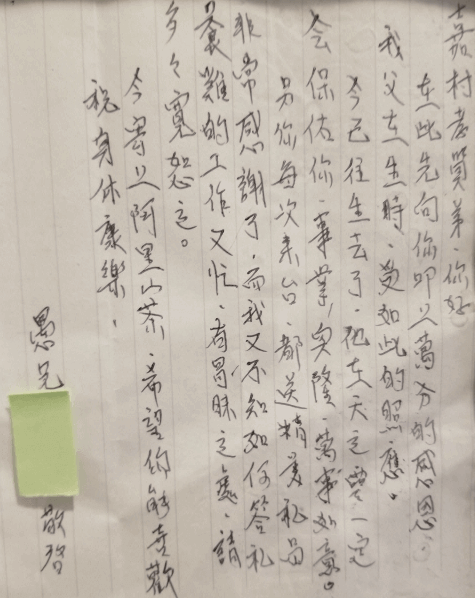 嘉村老買弟·你好
在此先向你叩上萬分的感恩·
我父在生時·受如此的照應。
今已往生去了·他在天之靈一定
会保佑你·事業興隆·萬事如意。
另你每次來台·都送精美礼品
非常感謝了·而我又不知如何答礼
的工作又忙·有冒昧之處·請
多多寬恕之。
今寄上阿里山茶·希望你能喜歡
祝身体康樂·
愚兄
敬啓